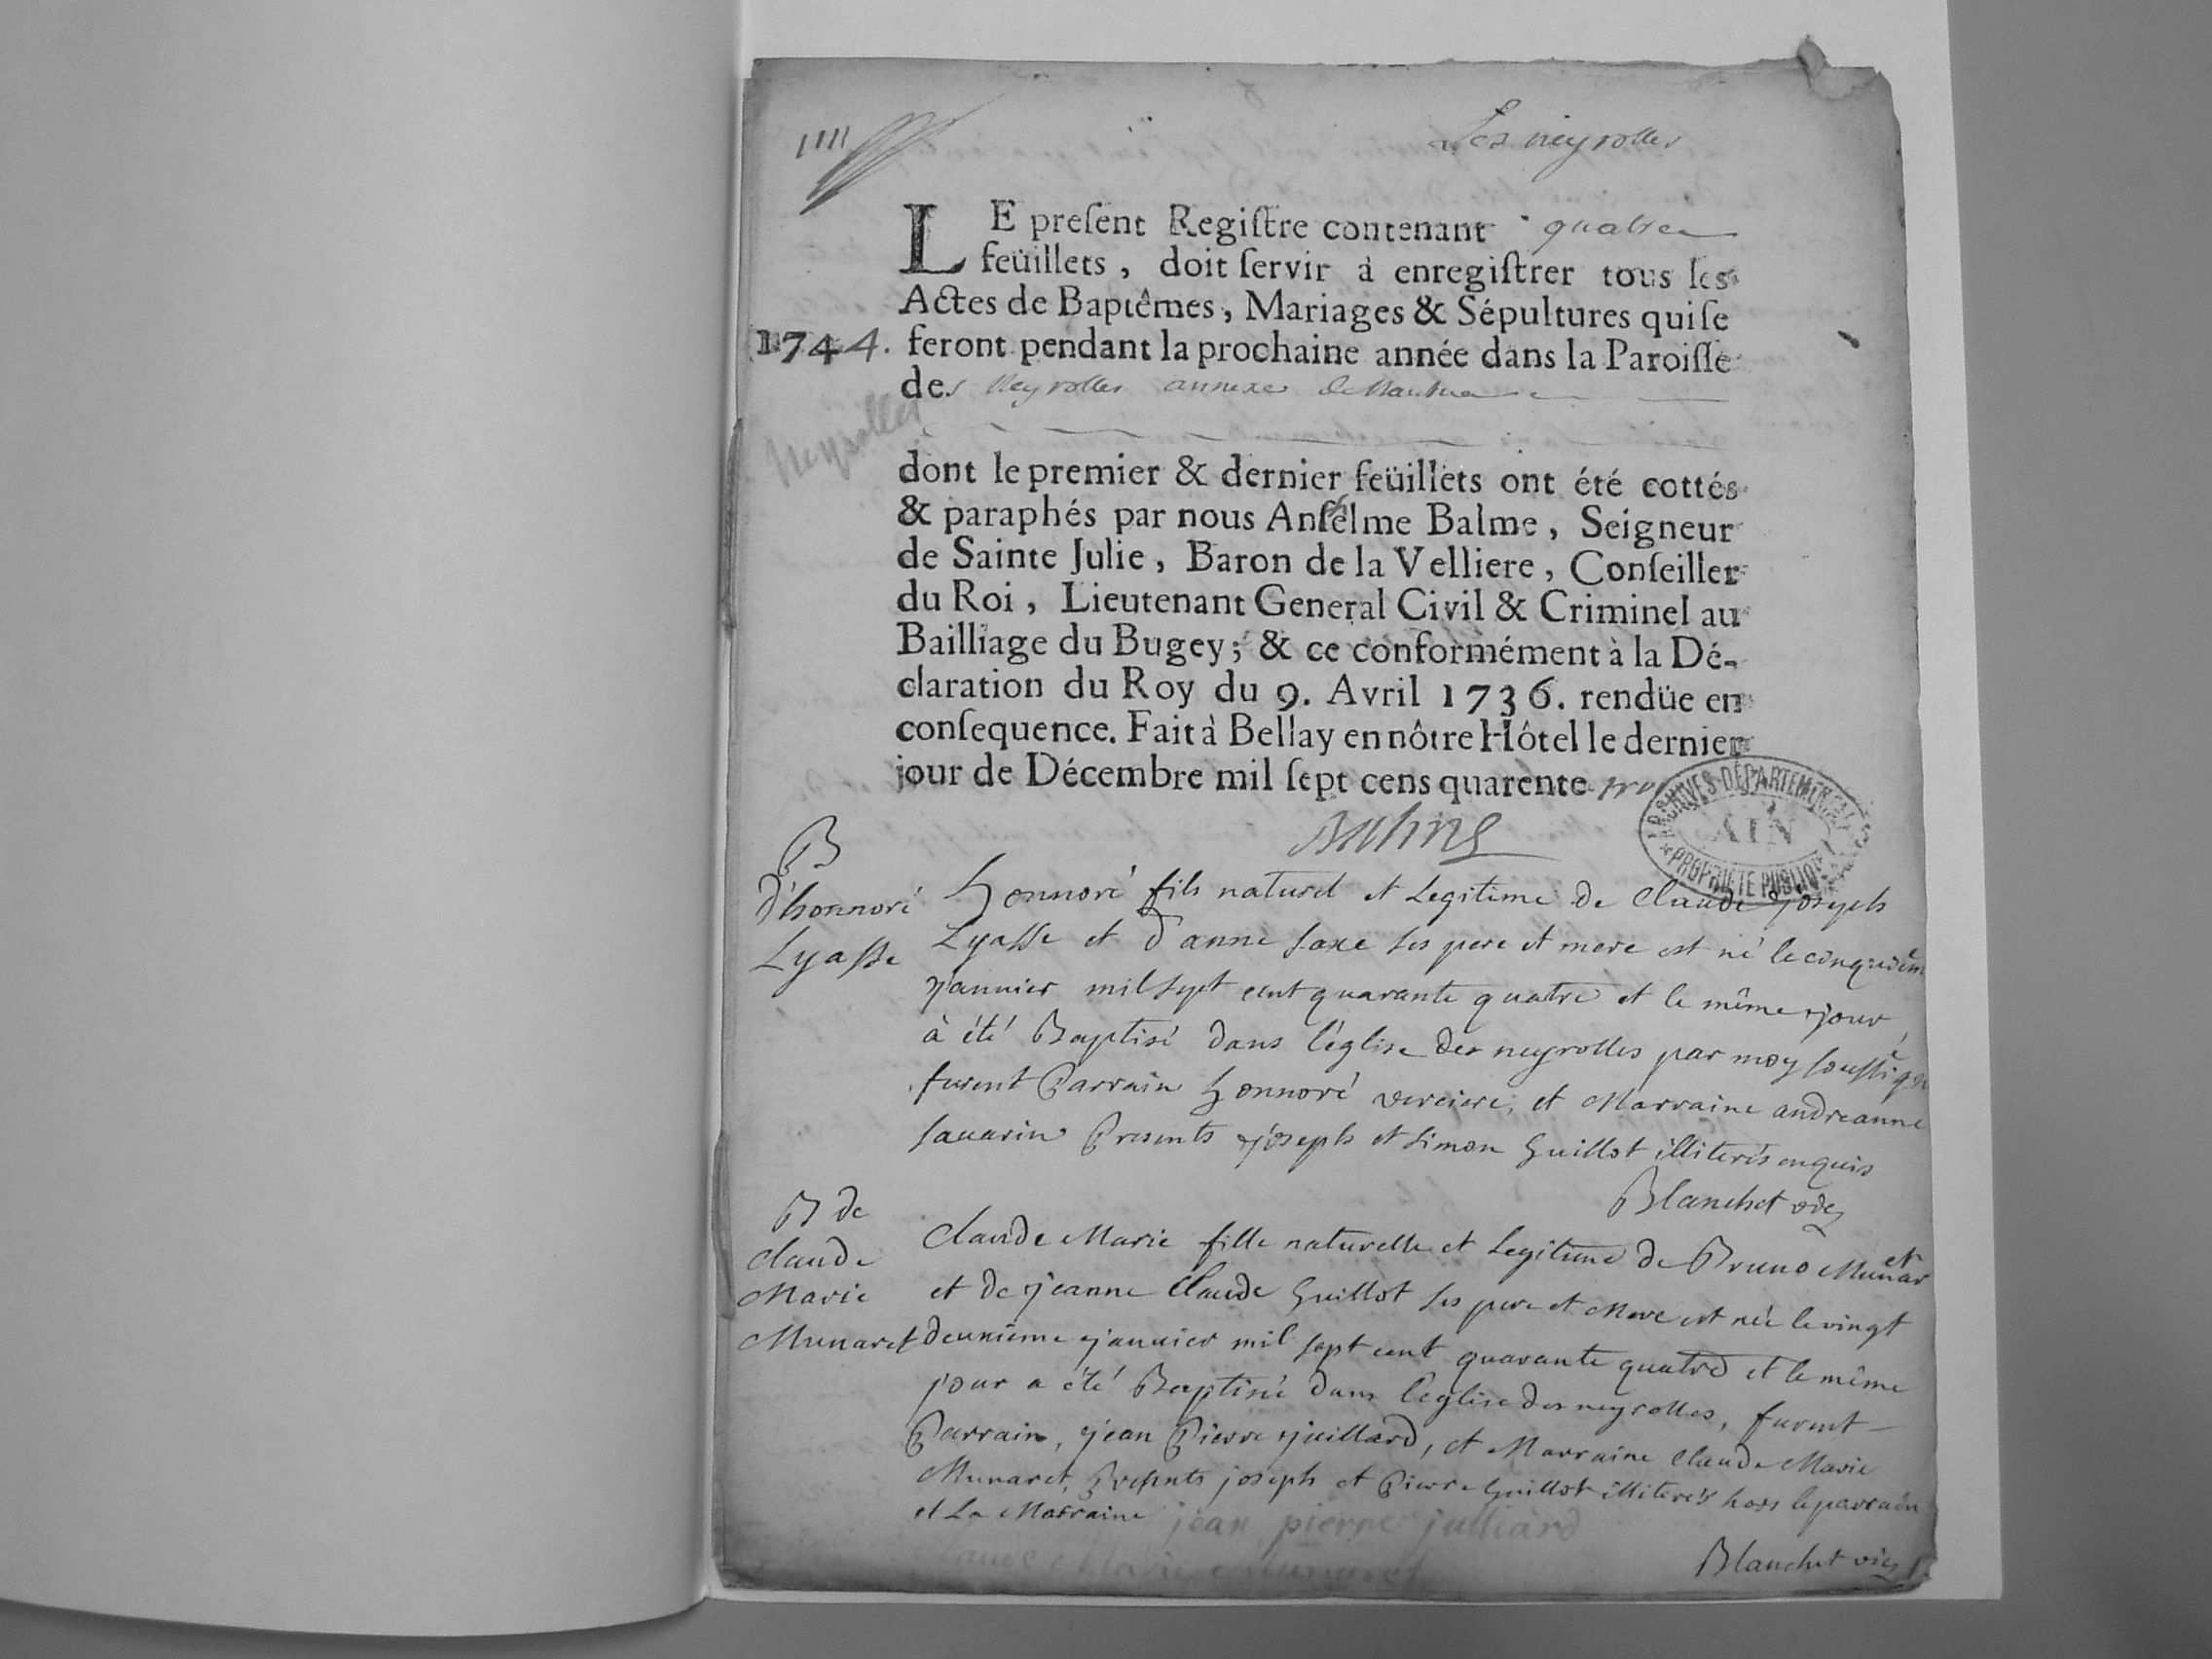 1111
Les neyrolles
LE preſent Regiſtre contenant quatre
feüillets, doit ſervir à enregiſtrer tous les
Actes de Baptêmes, Mariages & Sépultures qui ſe
1744. feront pendant la prochaine année dans la Paroiſſe
des Neyrolles annexe de Nantua
Neyrolles
dont le premier & dernier feüillets ont été cottés
& paraphés par nous Anthelme Balme, Seigneur
de Sainte Julie, Baron de la Velliere, Conſeiller
du Roi, Lieutenant General Civil & Criminel au
Bailliage du Bugey; & ce conformément à la Dé-
claration du Roy du 9. Avril 1736. rendüe en
conſequence. Fait à Bellay en nôtre Hôtel le dernier
jour de Décembre mil ſept cens quarente trois
ARCHIVES DÉPARTEMENTALES
AIN
* PROPRIÉTÉ PUBLIQUE *
Balme
B
d'honnoré
Lyasse
honnoré fils naturel et Legitime de Claude joseph
Lyasse et d'anne saxe ses pere et mere est né le cinquiem
janvier mil sept cent quarante quatre et le même jour
à été Baptisé dans l'église des neyrolles par moy soussigné
furent Parrain honnoré verciere, et Marraine andreanne
sauarin Presents joseph et simon Guillot illiterés enquis
Blanchet vic
B de
claude
Marie
Munaret
Claude Marie fille naturelle et Legitime de Bruno Munaret
et de jeanne Claude Guillot ses pere et Mere est née le vingt
deuxieme janvier mil sept cent quarante quatre et le même
jour a été Baptisée dans l'eglise des neyrolles, furent
Parrain, jean Pierre juillard, et Marraine Claude Marie
Munaret, Presents joseph et Pierre Guillot illiterés hors le parrain
et La Marraine jean pierre juilliard
Claude Marie Munaret
Blanchet vic